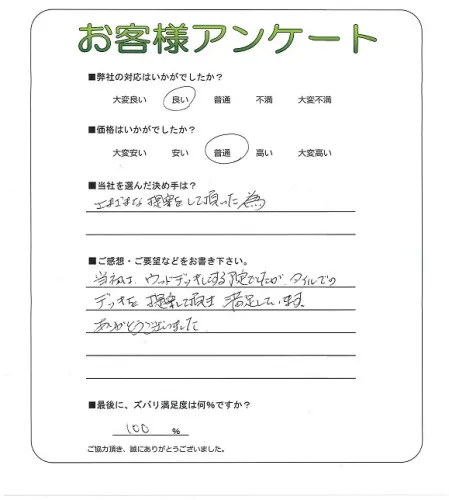 お客様アンケート
■弊社の対応はいかがでしたか？
大変良い 良い 普通 不満 大変不満
■価格はいかがでしたか？
大変安い 安い 普通 高い 大変高い
■当社を選んだ決め手は？
さまざまな提案をして頂った為
■ご感想・ご要望などをお書き下さい。
当初は、ウッドデッキにする予定でしたが、タイルでの
デッキを提案して頂き 満足しています。
ありがとうございました
■最後に、ズバリ満足度は何%ですか？
100 %
ご協力頂き、誠にありがとうございました。